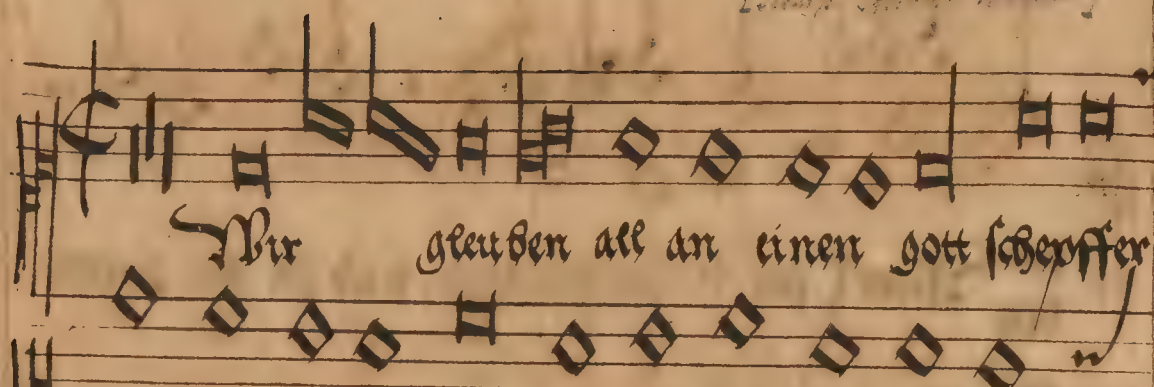 Wir gleuben all an einen gott schepffer